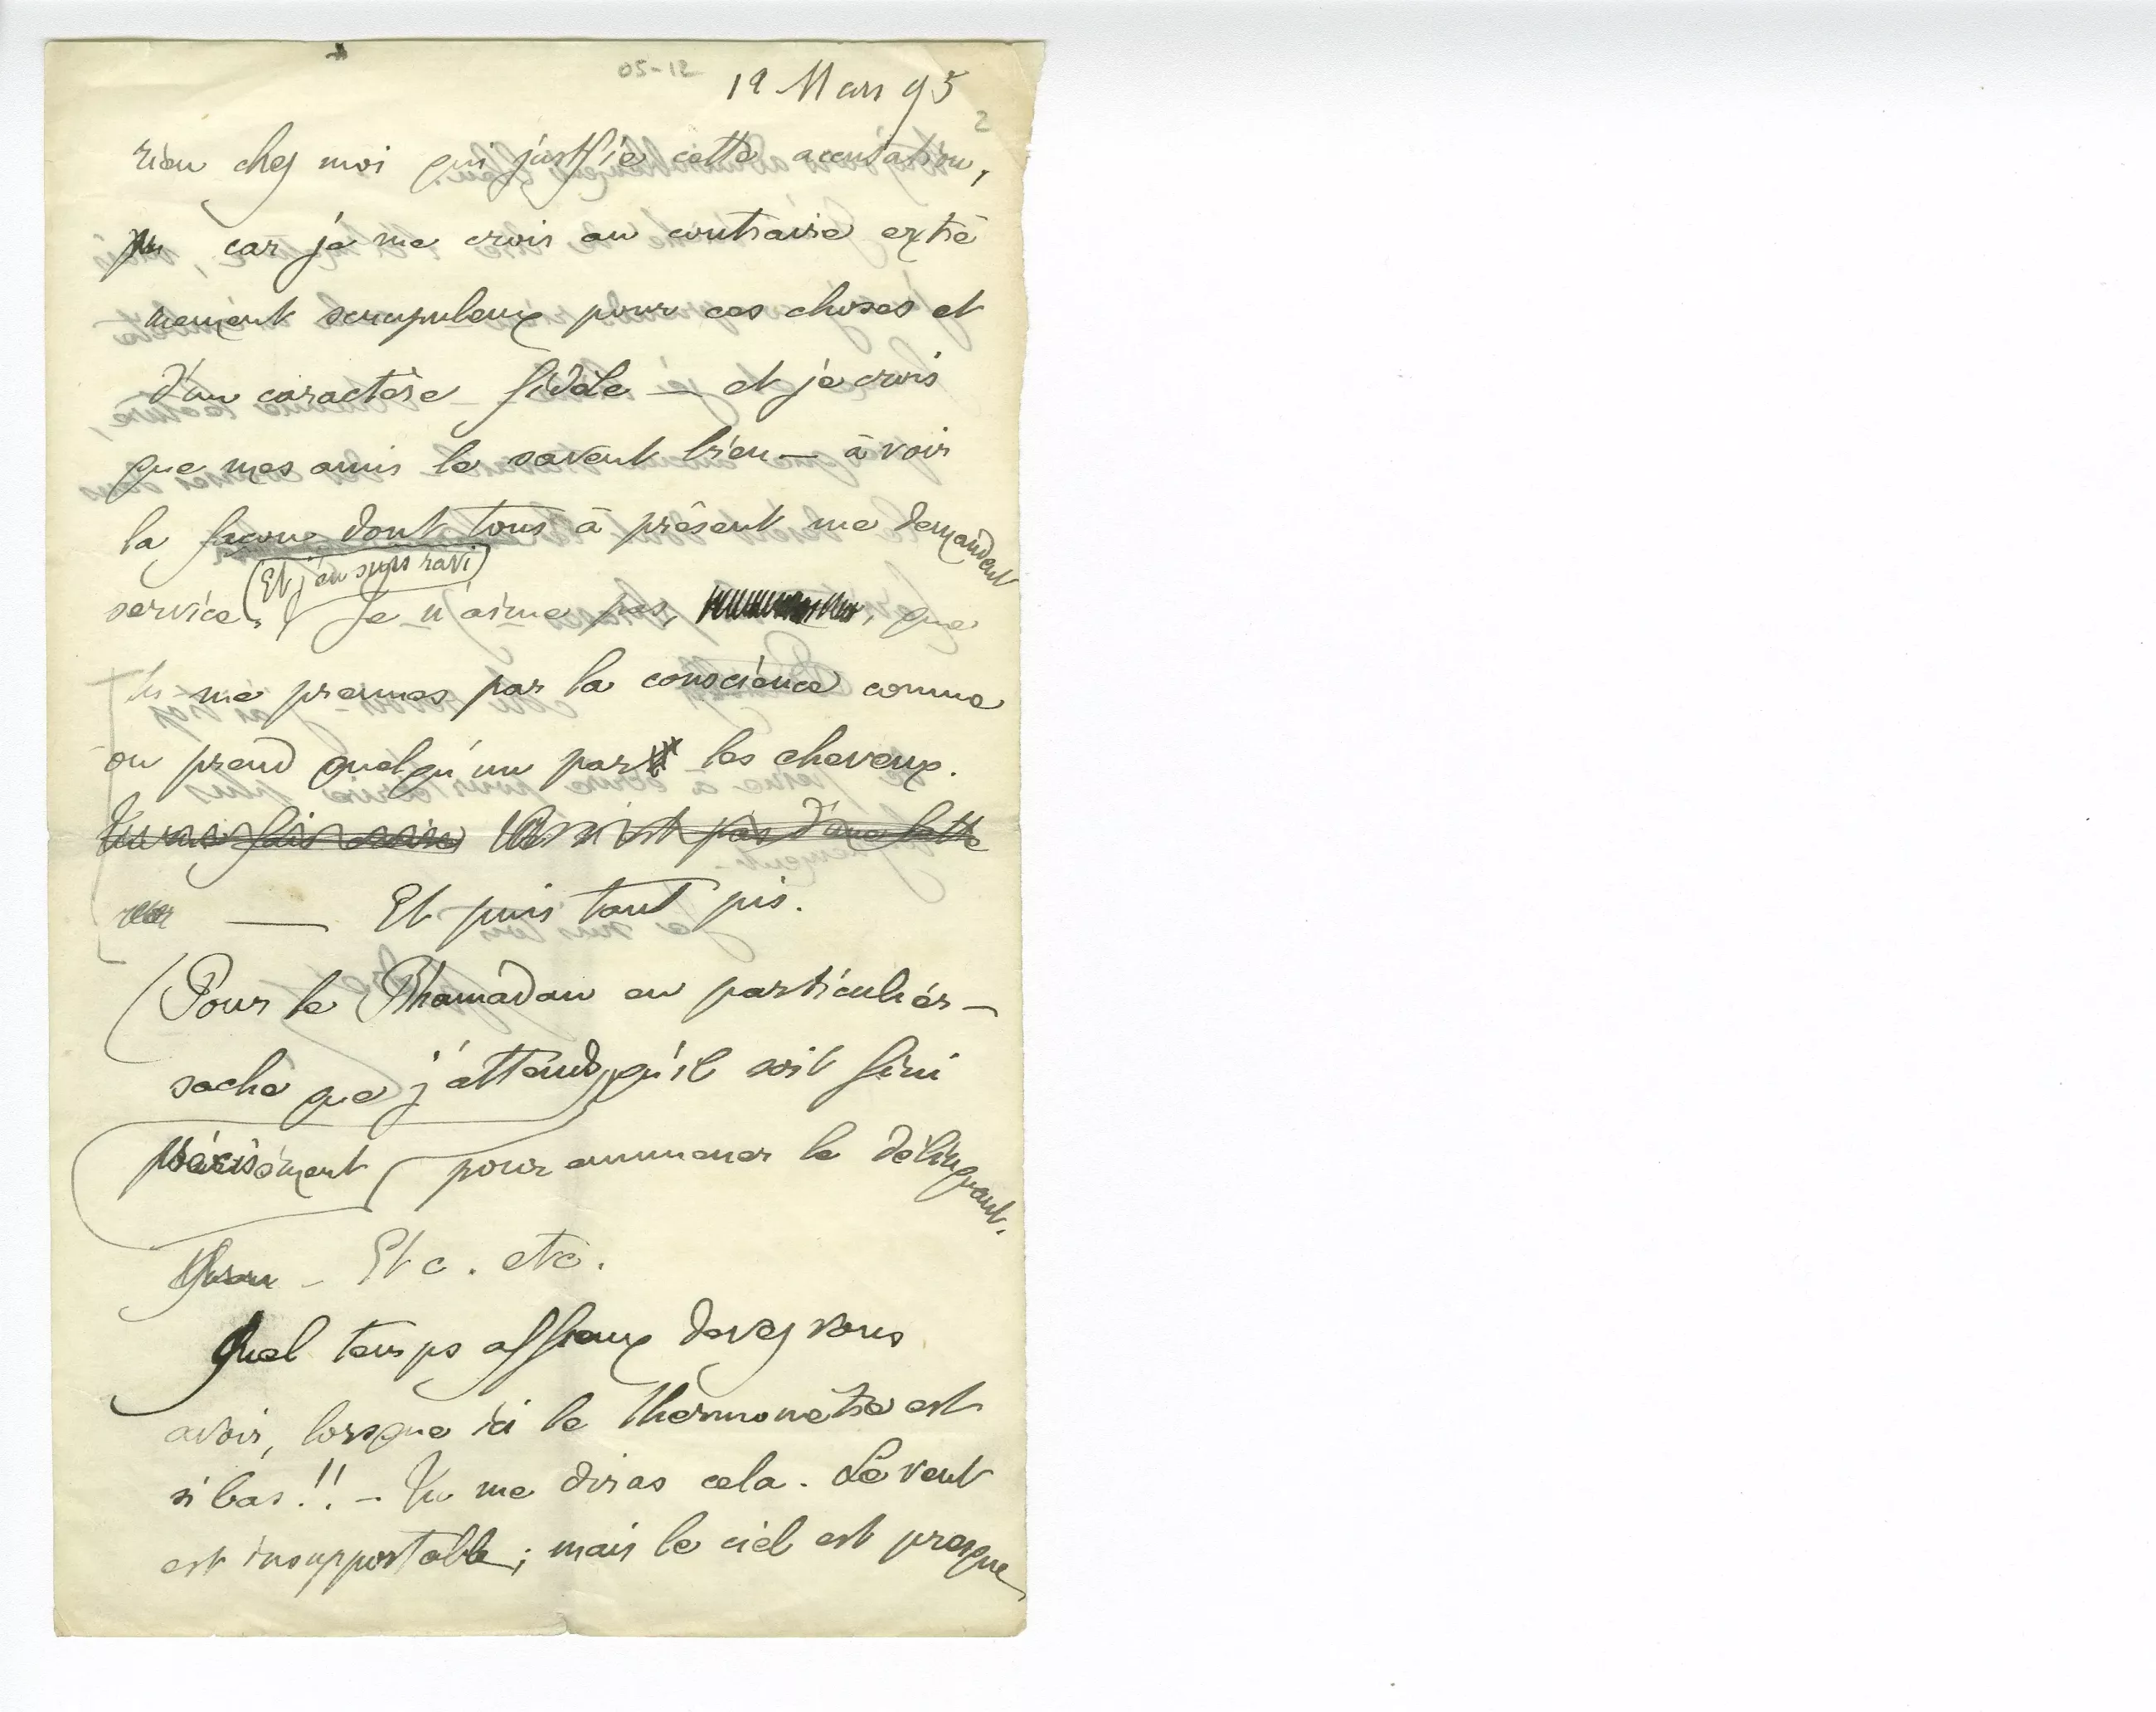 05-12
19 Mars 95
2
rien chez moi qui justifie cette accusation,
car je me crois au contraire extrê
mement scrupuleux pour ces choses et
d'un caractère fidèle — et je crois
que mes amis le savent bien — à voir
la façon dont tous à présent me demandent
(Et j'en suis ravi)
service. Je n'aime pas, que
tu me prennes par la conscience comme
on prend quelqu'un par les cheveux.
Tu me fais écrire n'est pas d'une lettre
— Et puis tant pis.
(Pour le Rhamadan en particulier —
sache que j'attends qu'il soit fini
précisément pour emmener le délinquant.
— Etc. etc.
Quel temps affreux devez vous
avoir, lorsque ici le thermomètre est
si bas!! — Tu me diras cela. Le vent
est insupportable; mais le ciel est presque